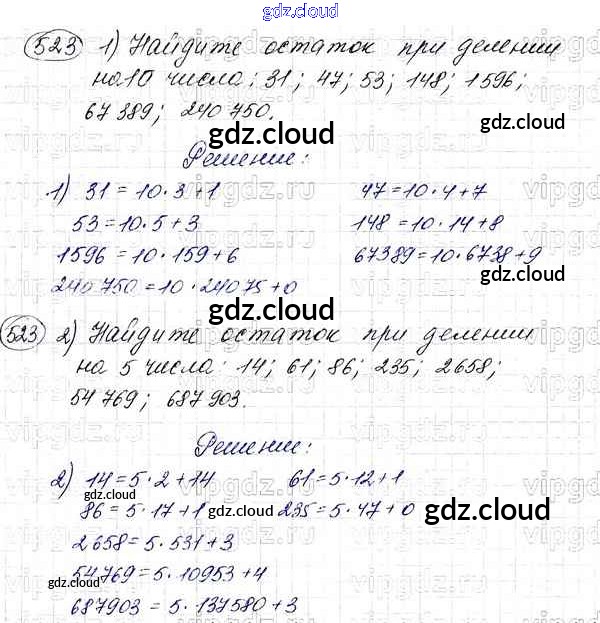 gdz.cloud
523 1) Найдите остаток при делении
на 10 числа: 31; 47; 53; 148; 1596;
67 389; 240 750.
gdz.cloud
Решение:
1) 31 = 10 · 3 + 1 47 = 10 · 4 + 7
53 = 10 · 5 + 3 148 = 10 · 14 + 8
1596 = 10 · 159 + 6 67389 = 10 · 6738 + 9
gdz.cloud
240 750 = 10 · 24075 + 0
gdz.cloud
523 2) Найдите остаток при делении
на 5 числа: 14; 61; 86; 235; 2658;
gdz.cloud
54 769; 687 903.
Решение:
2) 14 = 5 · 2 + 14 61 = 5 · 12 + 1
gdz.cloud
86 = 5 · 17 + 1 235 = 5 · 47 + 0
gdz.cloud
gdz.cloud
2658 = 5 · 531 + 3
54769 = 5 · 10953 + 4
687903 = 5 · 137580 + 3
gdz.cloud